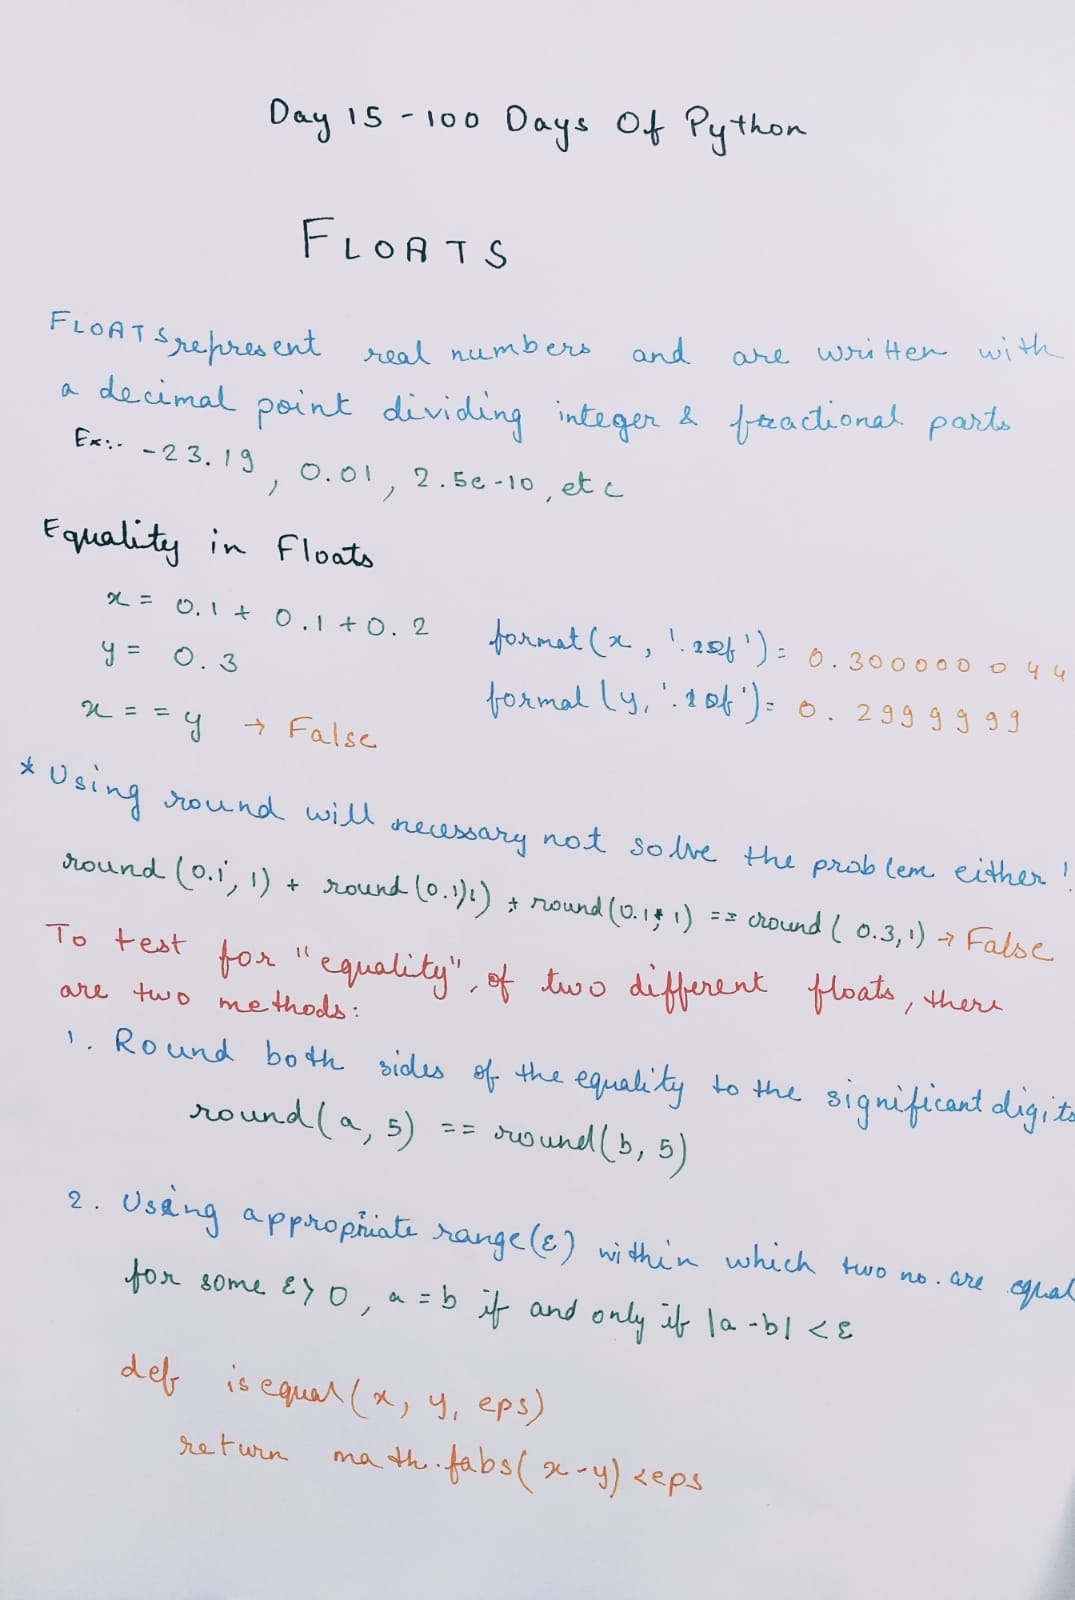 Day 15 - 100 Days Of Python
FLOATS
FLOATS represent real numbers and are written with
a decimal point dividing integer & fractional parts
Ex:- -23.19, 0.01, 2.5e-10, etc
Equality in Floats
x = 0.1 + 0.1 + 0.2
y = 0.3
x == y → False
format(x, '.25f') = 0.3000000 44
format(y, '.20f') = 0.2999999
* Using round will necessary not solve the problem either!
round (0.1, 1) + round (0.1,1) + round (0.1, 1) == round ( 0.3, 1) → False
To test for "equality", of two different floats, there
are two methods:
1. Round both sides of the equality to the significant digits
round(a, 5) == round(b, 5)
2. Using appropriate range(ε) within which two no. are equal
for some ε > 0, a = b if and only if |a - b| < ε
def isequal(x, y, eps)
return math.fabs(x-y) <eps